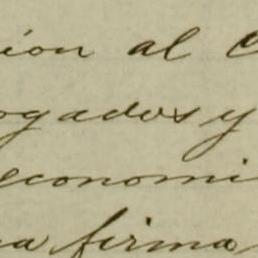 ion al C
ogados y
economi
a firma